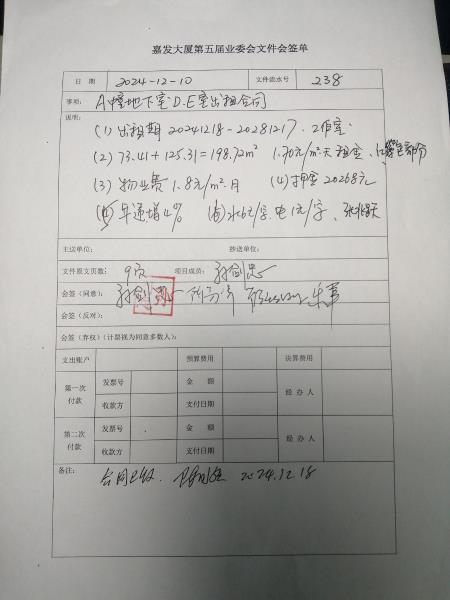 嘉发大厦第五届业委会文件会签单
日 期 2024-12-10 文件流水号 238
事项: A幢地下室D.E室出租合同
说明:
(1) 出租期 20241218-20281217. 工作室.
(2) 73.41+125.31=198.72m² 1.70元/m².天租金、
(3) 物业费 1.8元/m².月 (4) 押金 20268元
年递增4% 水6元/字.电1元/字、
主送单位: 抄送单位:
文件原文页数: 9页 项目成员:
会签(同意):
会签(反对):
会签(弃权)(计票视为同意多数人):
支出账户 预算费用 决算费用
第一次付款 发票号 金 额 经 办 人
收款方 支付日期
第二次付款 发票号 金 额 经 办 人
收款方 支付日期
备注:
合同已收. 2024.12.18